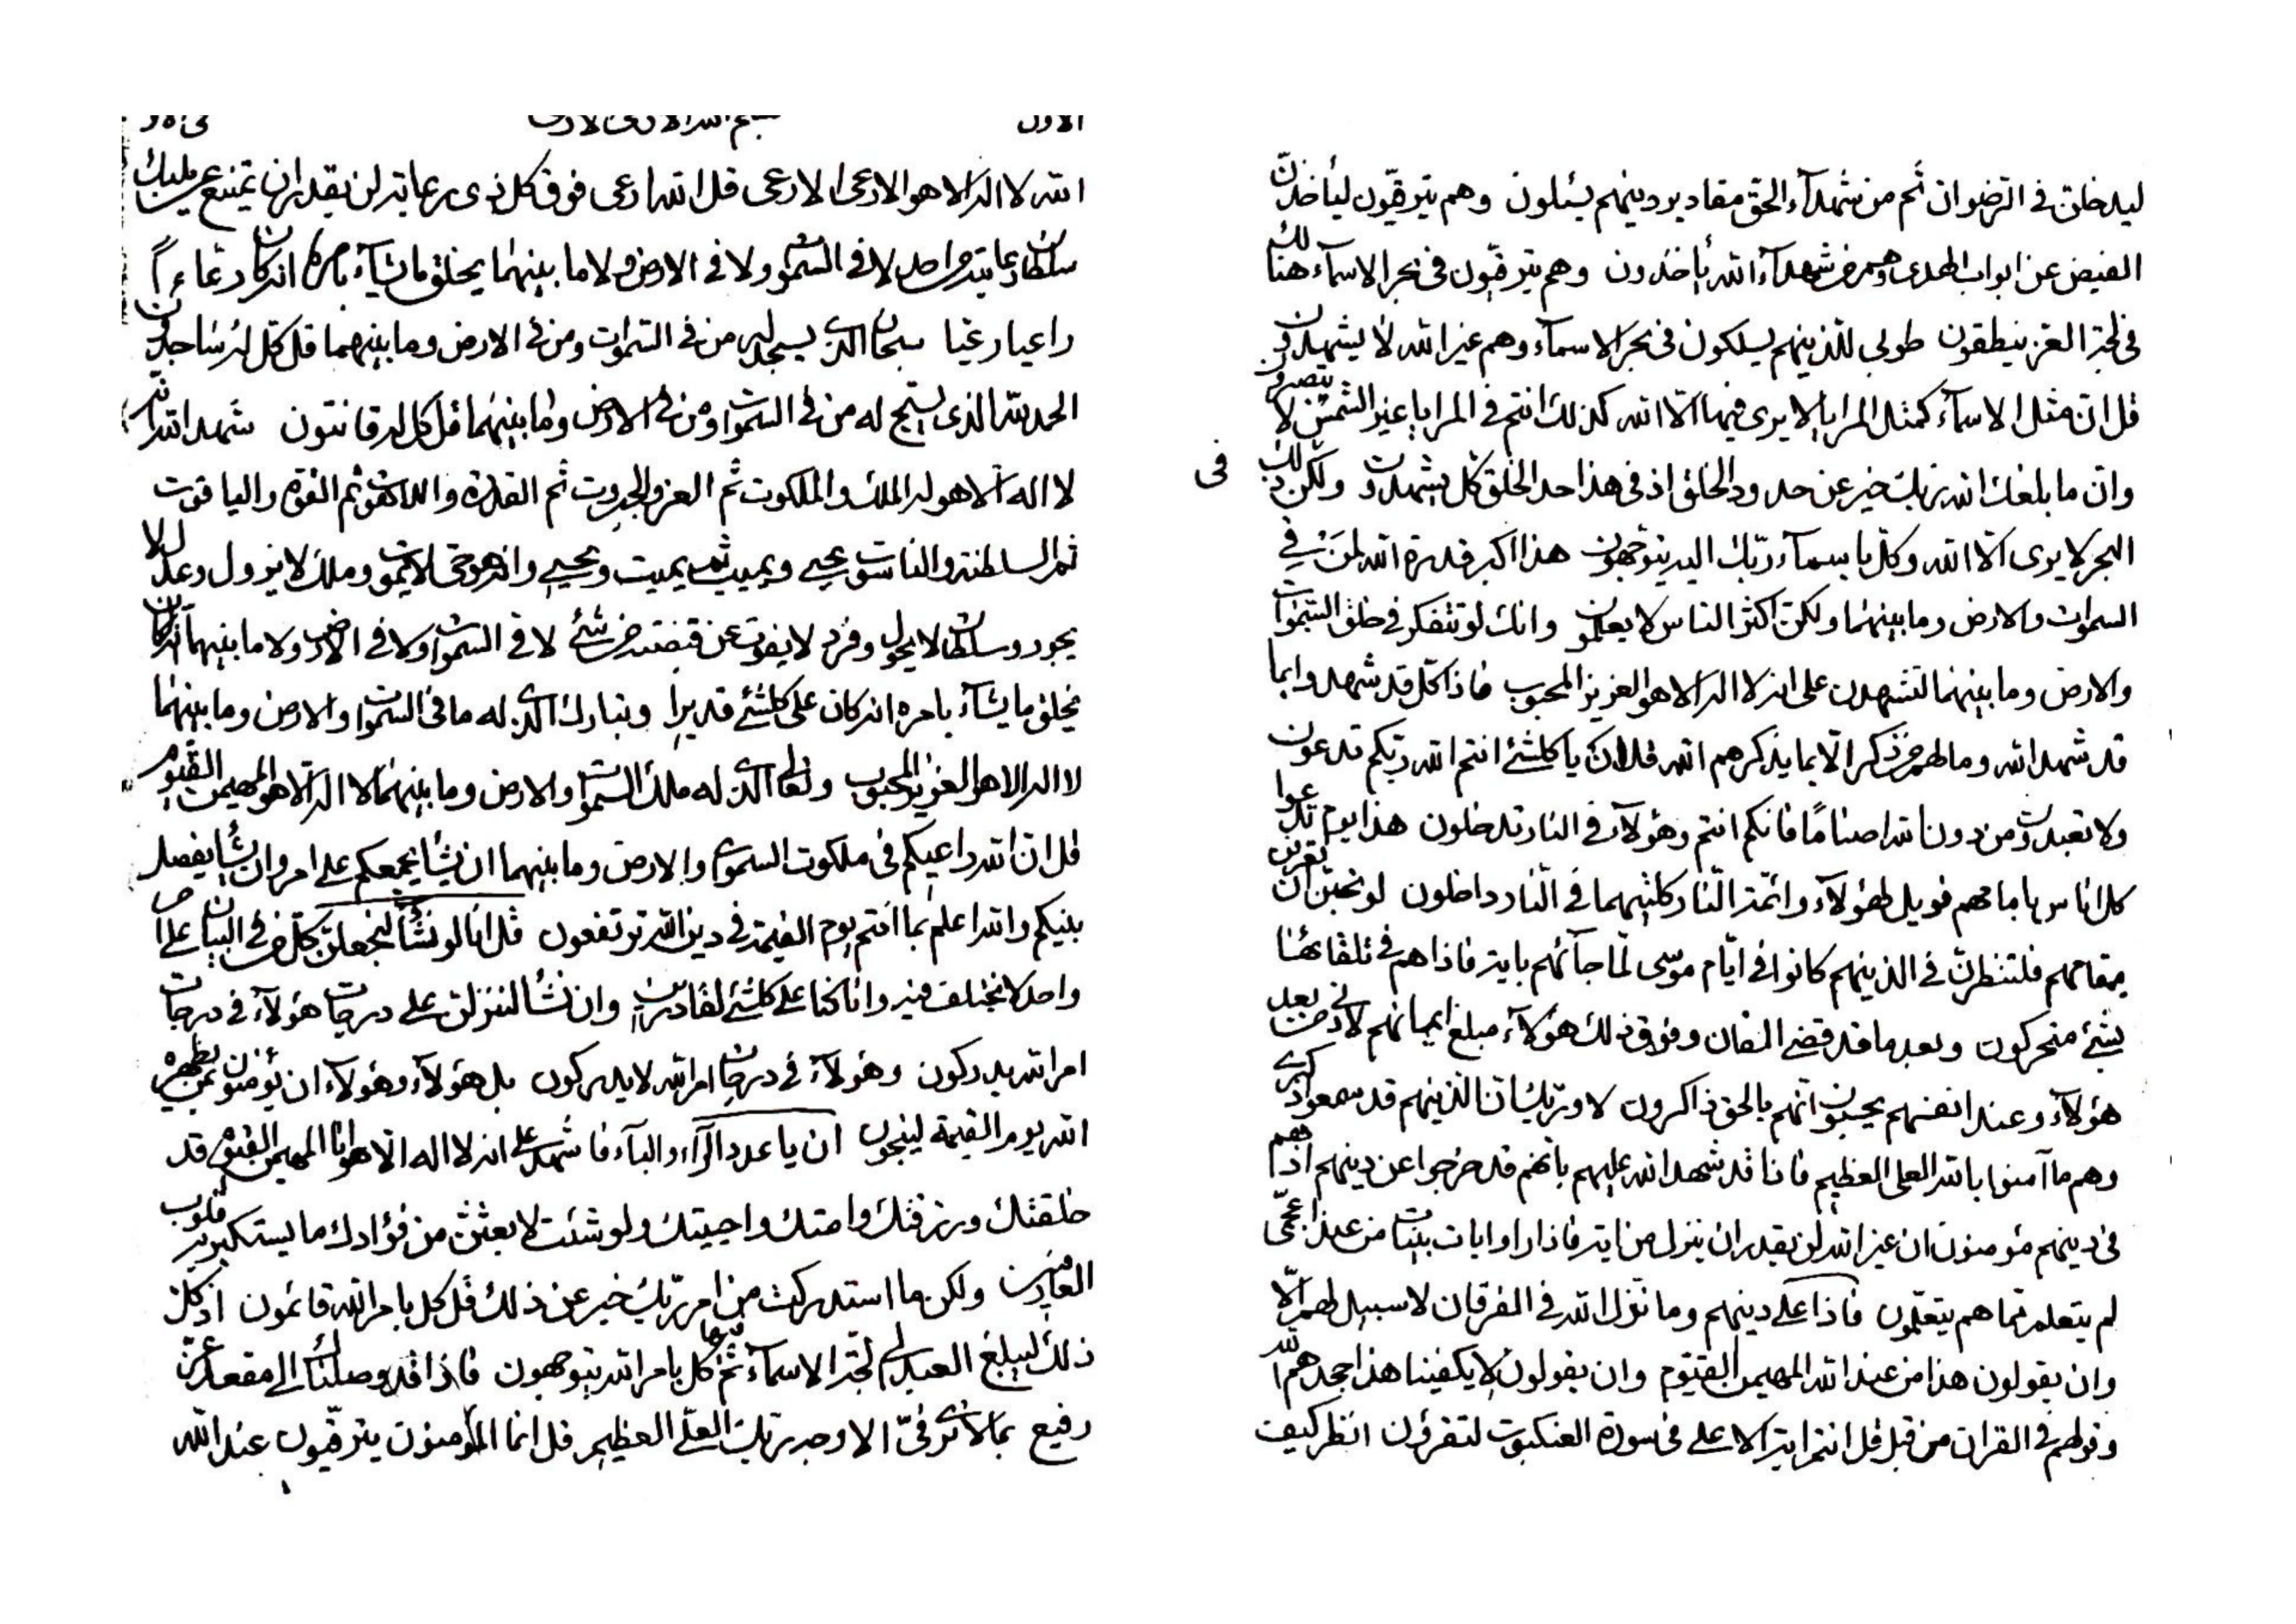 الاول بسم الله الارعى الارعى
الله لا اله الا هو الارعى الارعى قل الله ارعى فوق كل ذى رعاية لن يقدر ان يمتنع عن مليك
سلطان رعايته من احد لا فى السموات ولا فى الارض ولا ما بينهما يخلق ما يشآء بامره انه كان رعاءاً
راعيا رعيا سبحان الذى يسجد له من فى السموات ومن فى الارض وما بينهما قل كل له ساجدون
الحمد لله الذى يسبح له من فى السموات ومن فى الارض وما بينهما قل كل له قانتون شهد الله انه
لا اله الا هو له الملك والملكوت ثم العز والجبروت ثم القدرة واللاهوت ثم القوة والياقوت
ثم السلطنة والناسوت يحيي ويميت ثم يميت ويحيي وانه هو حى لا يموت وملك لا يزول وعدل لا
يجور وسلطان لا يحول وفرد لا يفوت عن قبضته من شئ لا فى السموات ولا فى الارض ولا ما بينهما انه كان
يخلق ما يشآء بامره انه كان على كلشئ قديرا وتبارك الذى له ما فى السموات والارض وما بينهما
لا اله الا هو العزيز المحبوب وتعالى الذى له ملك السموات والارض وما بينهما لا اله الا هو المهيمن القيوم
قل ان الله راعيكم فى ملكوت السموات والارض وما بينهما ان يشأ يجمعكم على امر وان يشأ يفصل
بينكم والله اعلم بما انتم يوم القيمة فى دين الله ترتفعون قل انا لو نشأ لنجعلن كل من فى البيان على
واحد لا يختلف فيه وانا كنا على كلشئ لقادرين وان نشأ لننزلن على درجات هؤلآء فى درجات
امر الله يدركون وهؤلآء فى درجات امر الله لا يدركون بل هؤلآء وهؤلآء ان يؤمنون بمن يظهره
الله يوم القيمة لينجون ان يا عدد الرآء والبآء فاشهد على انه لا اله الا هو انا المهيمن القيوم قد
خلقتك ورزقتك وامتك واحييتك ولو شئت لابعثن من فؤادك ما يستكبر به قلوب
العارفين ولكن ما استدركت من امر ربك خير عن ذلك قل كل بامر الله قائمون اذ كل
ذلك ليبلغ العبد الى لجة الاسمآء ثم كل بامر الله يتوجهون فاذا قد وصلناك الى مقعد عز
رفيع بما لا ترى فى الا وجه ربك العلى العظيم قل انما المؤمنون يترقبون عند الله
ليدخلن فى الرضوان ثم من شهدآء الحق مقادير دينهم يسئلون وهم يترقبون ليأخذن
الفيض عن ابواب الهدى وهم من شهدآء الله يأخذون وهم يترقبون فى بحر الاسمآء هنالك
فى لجة العز ينطقون طوبى للذينهم يسلكون فى بحر الاسمآء وهم غير الله لا يشهدون
قل ان مثل الاسمآء كمثل المرايا لا يرى فيها الا الله كذلك انتم فى المرايا غير الشمس لا تبصرون
وان ما بلغك الله ربك خير عن حدود الخلق اذ فى هذا حد الخلق كل يشهدون ولكن ذلك فى
البحر لا يرى الا الله وكل باسمآء ربك اليه يتوجهون هذا اكبر قدرة الله لمن فى
السموات والارض وما بينهما ولكن اكثر الناس لا يعلمون وانك لو تتفكر فى خلق السموات
والارض وما بينهما لتشهدن على انه لا اله الا هو العزيز المحبوب فاذا كل قد شهد وابما
قد شهد الله وما لهم من ذكر الا بما يذكرهم الله قل ان يا كلشئ انتم الله ربكم تدعون
ولا تعبدون من دون الله اصناما فانكم انتم وهؤلآء فى النار تدخلون هذا يوم تدعوا
كل اناس بامامهم فويل لهؤلآء وائمة النار كلتيهما فى النار داخلون لو تحبن ان تعرفن
مقامهم فلتنظرن فى الذينهم كانوا فى ايام موسى لما جآئهم باية فاذا هم فى تلقائها
بشئ متحركون وبعد ما قد قضى الفان وفوق ذلك هؤلآء مبلغ ايمانهم لا ذكرى من بعد
هؤلآء وعند انفسهم يحسبون انهم بالحق ذاكرون لا وربك ان الذينهم قد سمعوا ذكرى
وهم ما آمنوا بالله العلى العظيم فاذا قد شهد الله عليهم بانهم قد خرجوا عن دينهم اذ هم
فى دينهم مؤمنون ان غير الله لن يقدر ان ينزل من اية فاذا راوا ايات بينات من عند اعجمى
لم يتعلم مما هم يتعلمون فاذا على دينهم وما نزل الله فى الفرقان لا سبيل لهم الا
وان يقولون هذا من عند الله المهيمن القيوم وان يقولون لا يكفينا هذا حجة هم الله
وقولهم فى القران من قبل قل انتم اية الاعلى فى سورة العنكبوت لتقرؤن انظر كيف